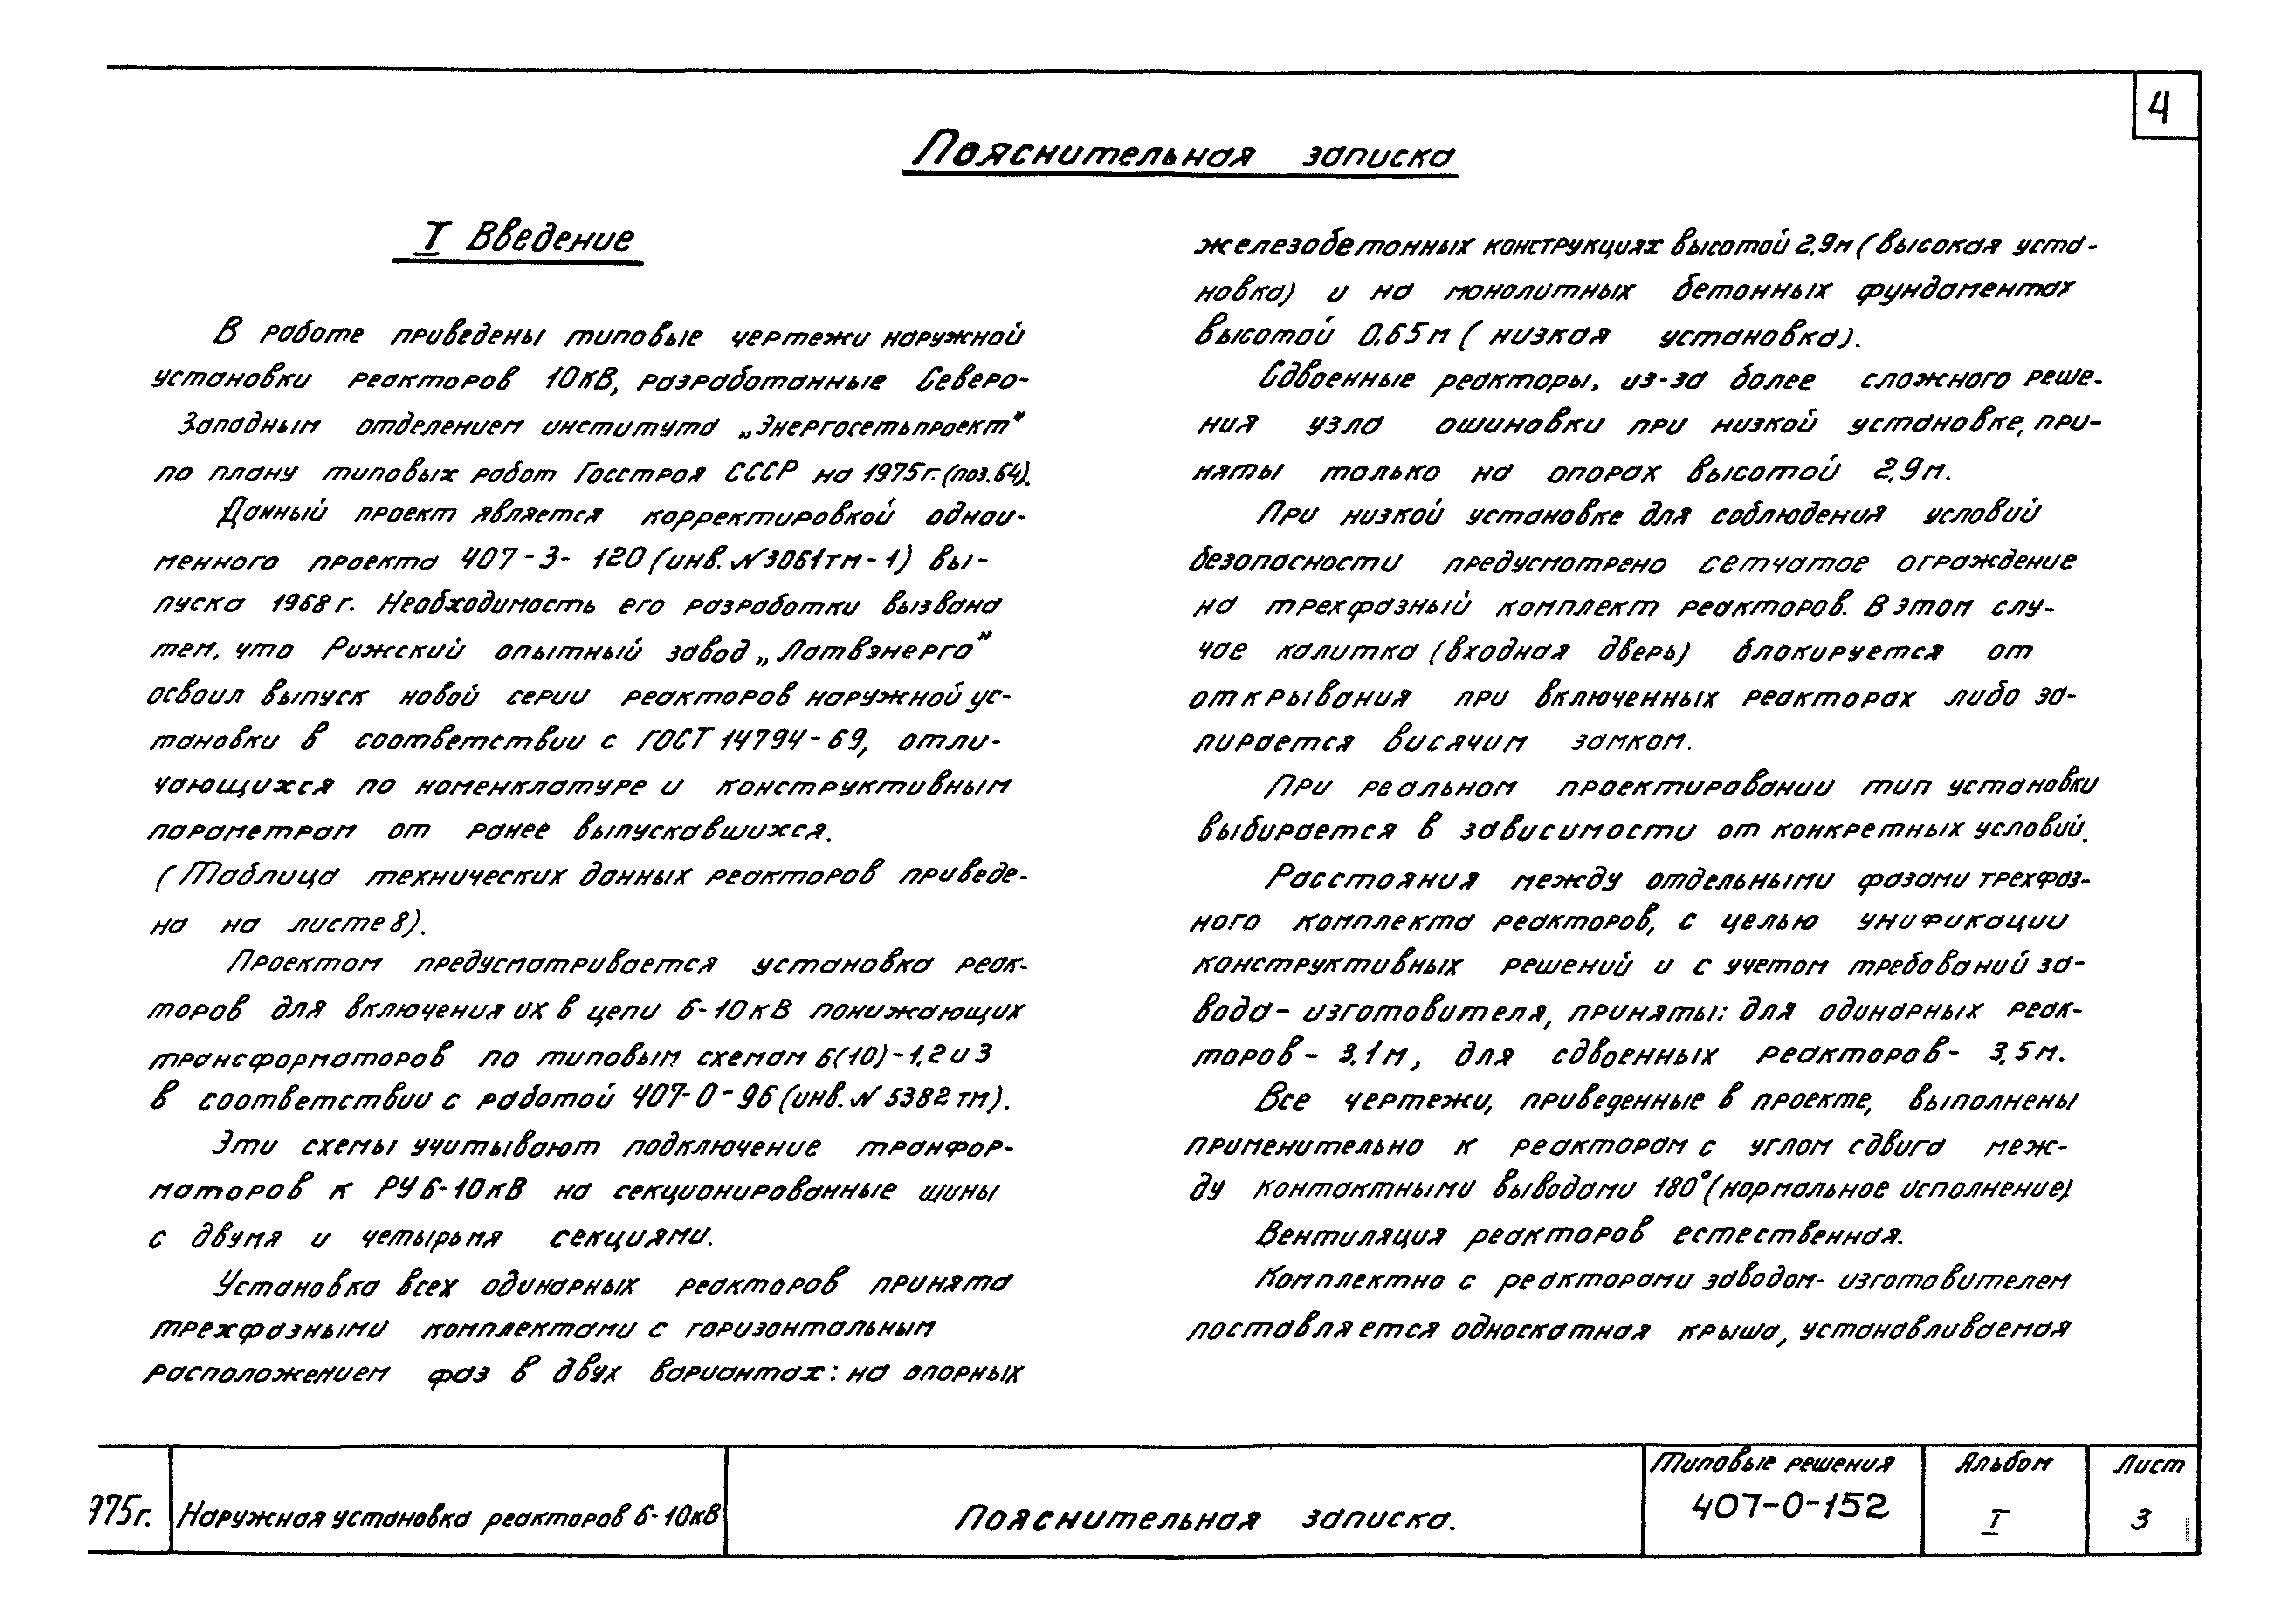 4
Пояснительная записка
I Введение
В работе приведены типовые чертежи наружной
установки реакторов 10кВ, разработанные Северо-
Западным отделением института „Энергосетьпроект"
по плану типовых работ Госстроя СССР на 1975г. (поз.64).
Данный проект является корректировкой однои-
менного проекта 407-3-120 (инв.N3061тм-1) вы-
пуска 1968г. Необходимость его разработки вызвана
тем, что Рижский опытный завод „Латвэнерго"
освоил выпуск новой серии реакторов наружной ус-
тановки в соответствии с ГОСТ 14794-69, отли-
чающихся по номенклатуре и конструктивным
параметрам от ранее выпускавшихся.
(Таблица технических данных реакторов приведе-
на на листе 8).
Проектом предусматривается установка реак-
торов для включения их в цепи 6-10кВ понижающих
трансформаторов по типовым схемам 6(10)-1,2 и 3
в соответствии с работой 407-0-96 (инв.N 5382тм).
Эти схемы учитывают подключение транфор-
маторов к РУ 6-10кВ на секционированные шины
с двумя и четырьмя секциями.
Установка всех одинарных реакторов принята
трехфазными комплектами с горизонтальным
расположением фаз в двух вариантах: на опорных
железобетонных конструкциях высотой 2,9м (высокая уста-
новка) и на монолитных бетонных фундаментах
высотой 0,65м (низкая установка).
Сдвоенные реакторы, из-за более сложного реше-
ния узла ошиновки при низкой установке, при-
няты только на опорах высотой 2,9м.
При низкой установке для соблюдения условий
безопасности предусмотрено сетчатое ограждение
на трехфазный комплект реакторов. В этом слу-
чае калитка (входная дверь) блокируется от
открывания при включенных реакторах либо за-
пирается висячим замком.
При реальном проектировании тип установки
выбирается в зависимости от конкретных условий.
Расстояния между отдельными фазами трехфаз-
ного комплекта реакторов, с целью унификации
конструктивных решений и с учетом требований за-
вода-изготовителя, приняты: для одинарных реак-
торов - 3,1м, для сдвоенных реакторов - 3,5м.
Все чертежи, приведенные в проекте, выполнены
применительно к реакторам с углом сдвига меж-
ду контактными выводами 180° (нормальное исполнение)
Вентиляция реакторов естественная.
Комплектно с реакторами заводом-изготовителем
поставляется односкатная крыша, устанавливаемая
975г.
Наружная установка реакторов 6-10кВ
Пояснительная записка.
Типовые решения
407-0-152
Альбом
I
Лист
3